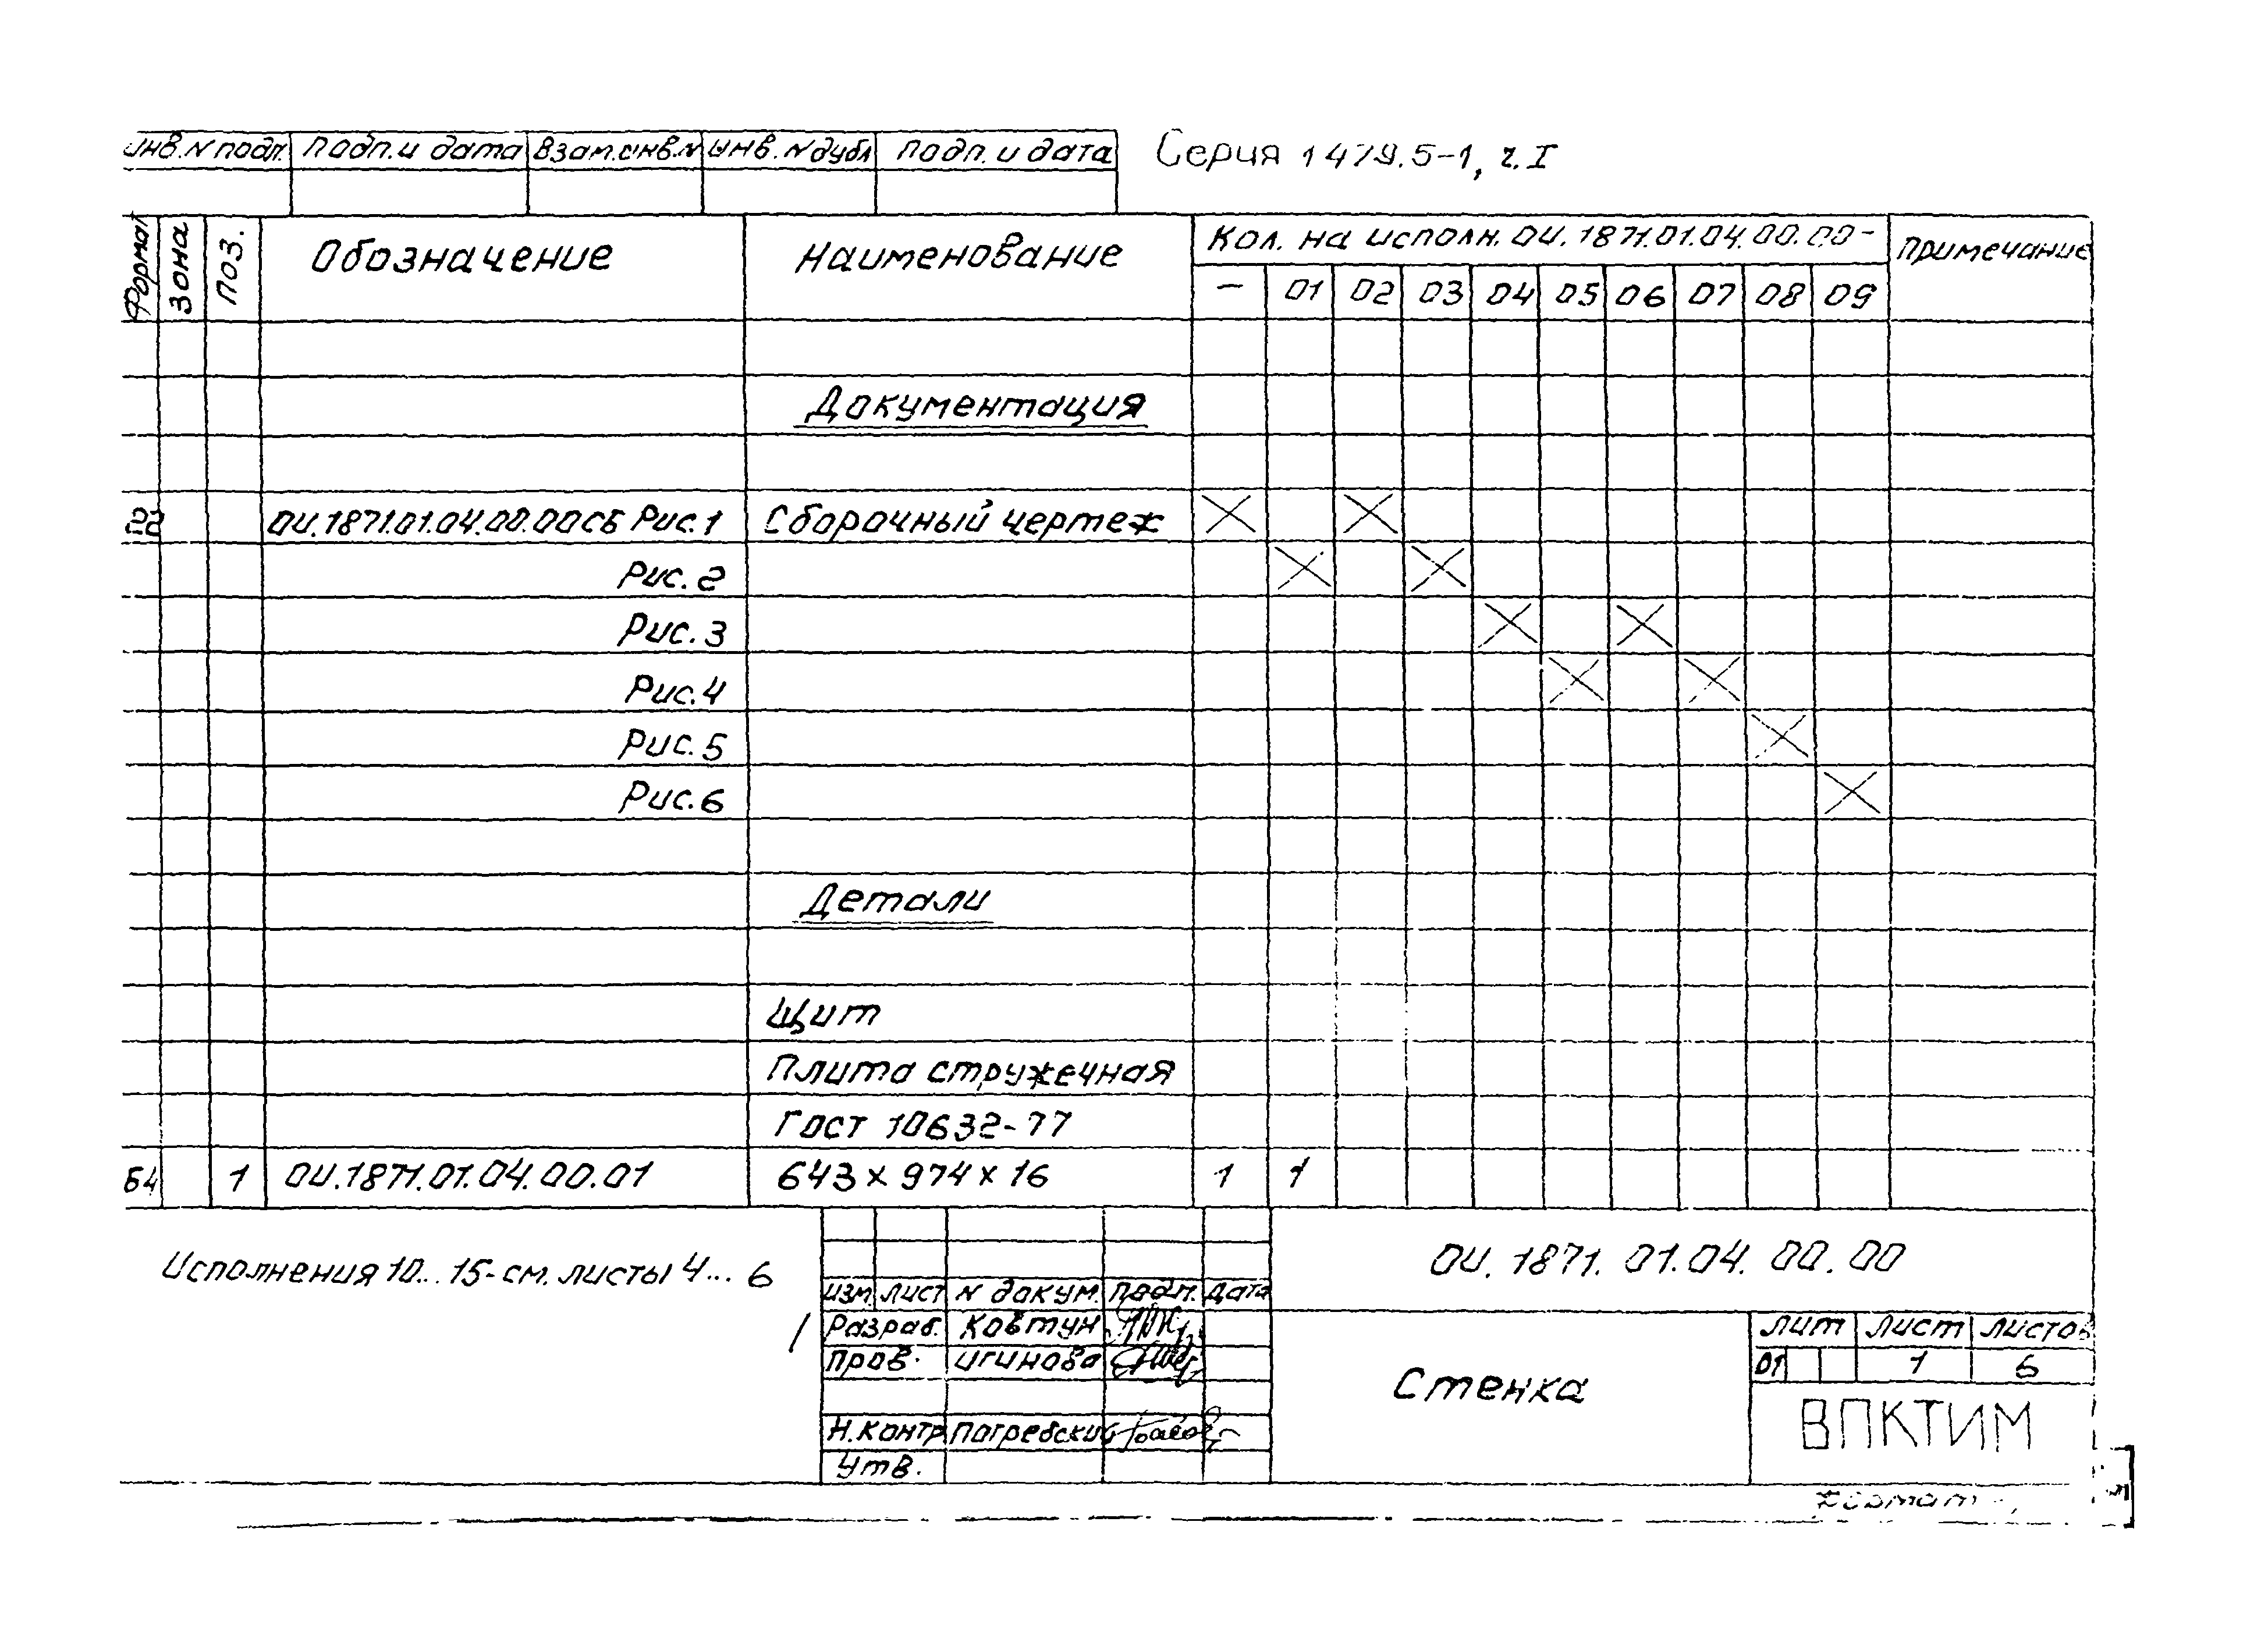 Инв.N подл. Подп. и дата Взам.инв.N Инв.N дубл Подп. и дата Серия 1479.5-1, ч.I
Формат Зона Поз. Обозначение Наименование Кол. на исполн. ОИ.1871.01.04.00.00- Примечание
- 01 02 03 04 05 06 07 08 09
Документация
ОИ.1871.01.04.00.00СБ Рис.1 Сборочный чертеж
Рис.2
Рис.3
Рис.4
Рис.5
Рис.6
Детали
Щит
Плита стружечная
Гост 10632-77
Б4 1 ОИ.1871.01.04.00.01 643 х 974 х 16 1 1
Исполнения 10... 15-см. листы 4... 6
ОИ. 1871. 01.04. 00. 00
Изм. Лист N докум. Подп. Дата
Разраб. Ковтун
Пров. Игинова
Н.контр Погребский
Утв.
Стенка
Лит Лист Листов
01 1 6
ВПКТИМ
Формат